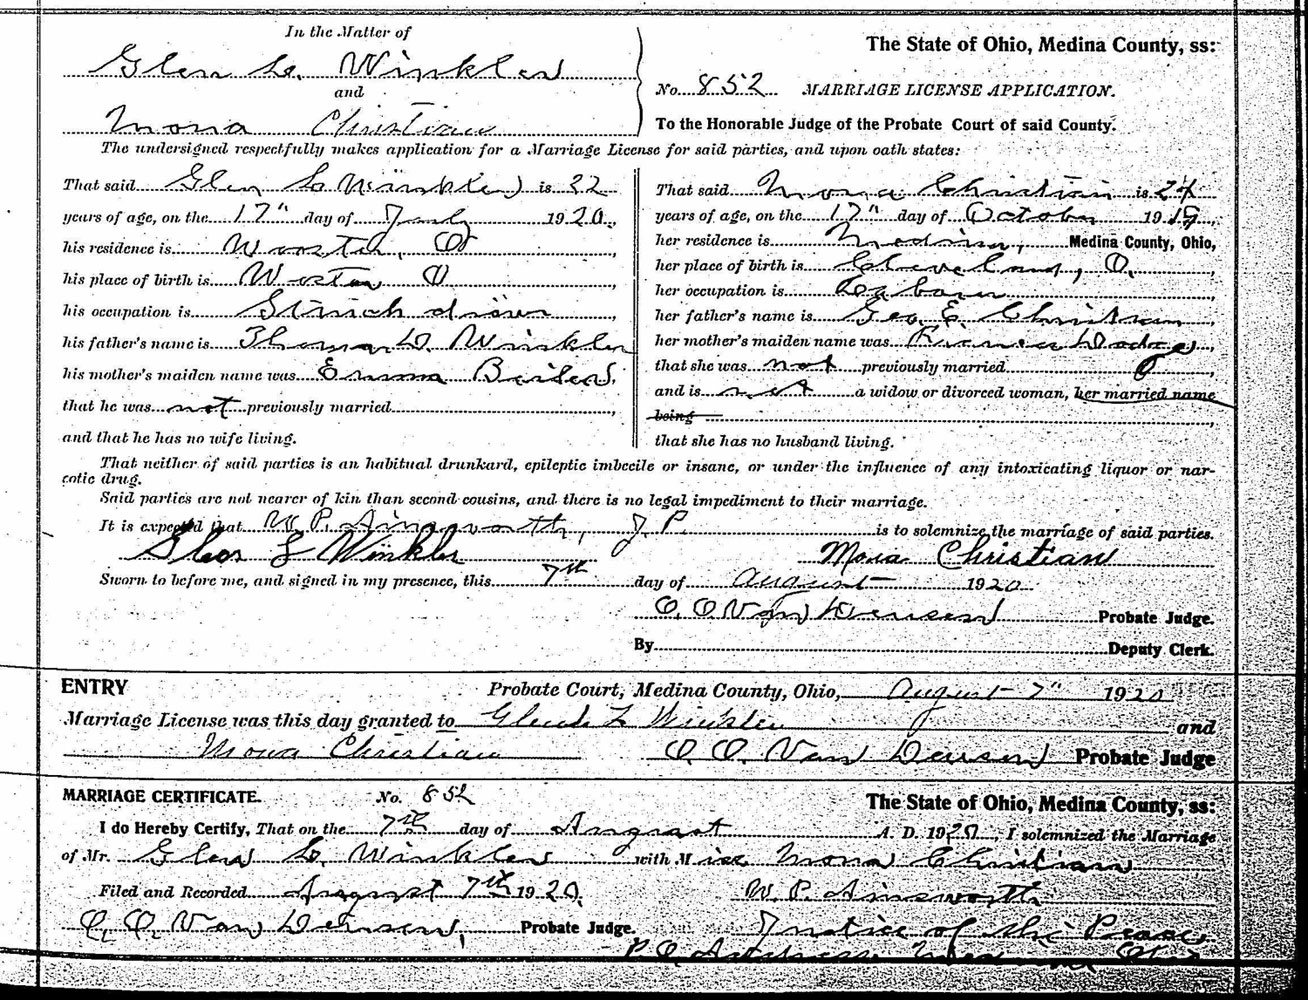 In the Matter of
Glen L. Winkler
and
Mona Christian
The State of Ohio, Medina County, ss:
No. 852 MARRIAGE LICENSE APPLICATION.
To the Honorable Judge of the Probate Court of said County:
The undersigned respectfully makes application for a Marriage License for said parties, and upon oath states:
That said Glen L Winkler is 22
years of age, on the 17" day of July 1920,
his residence is Wooster, O
his place of birth is Woster O
his occupation is driver
his father's name is Thomas D. Winkler
his mother's maiden name was Emma
that he was not previously married
and that he has no wife living.
That said Mona Christian is 24
years of age, on the 17" day of October 1919,
her residence is Medina, Medina County, Ohio,
her place of birth is Cleveland, O.
her occupation is
her father's name is Geo. E. Christian
her mother's maiden name was Dodge
that she was not previously married
and is not a widow or divorced woman, her married name
being
that she has no husband living.
That neither of said parties is an habitual drunkard, epileptic imbecile or insane, or under the influence of any intoxicating liquor or nar-
cotic drug.
Said parties are not nearer of kin than second cousins, and there is no legal impediment to their marriage.
It is expected that W. P. Ainsworth, J. P. is to solemnize the marriage of said parties.
Glen L Winkler Mona Christian
Sworn to before me, and signed in my presence, this 7th day of August 1920
O. O. Van Deusen Probate Judge.
By Deputy Clerk.
ENTRY Probate Court, Medina County, Ohio, August 7" 1920
Marriage License was this day granted to L Winkler and
Mona Christian O. O. Van Deusen Probate Judge
MARRIAGE CERTIFICATE. No. 852 The State of Ohio, Medina County, ss:
I do Hereby Certify, That on the 7th day of August A. D. 1920, I solemnized the Marriage
of Mr. Glen L. Winkler with Miss Mona Christian
Filed and Recorded August 7th 1920, W. P. Ainsworth
O. O. Van Deusen, Probate Judge. Justice of the Peace
P. O. Address Ohio